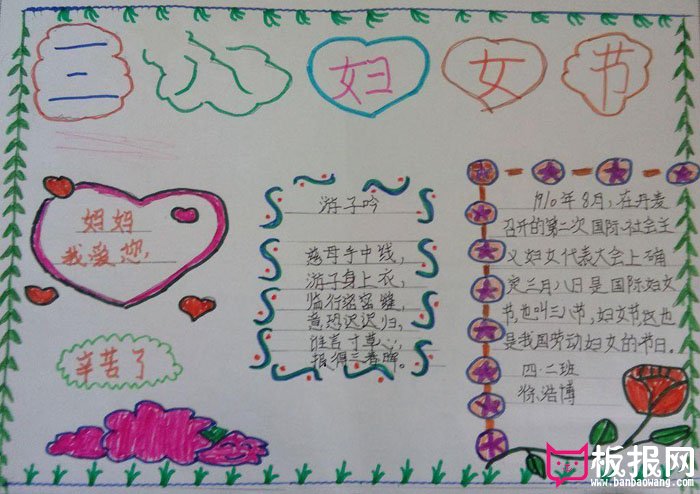 三八妇女节
妈妈
我爱您!
辛苦了
游子吟
慈母手中线,
游子身上衣,
临行密密缝,
意恐迟迟归,
谁言寸草心,
报得三春晖。
1910年8月,在丹麦
召开的第二次国际社会主
义妇女代表大会上确
定三月八日是国际妇女
节,也叫三八节,妇女节,这也
是我国劳动妇女的节日。
四.二班
徐浩博
板报网
www.banbaowang.com